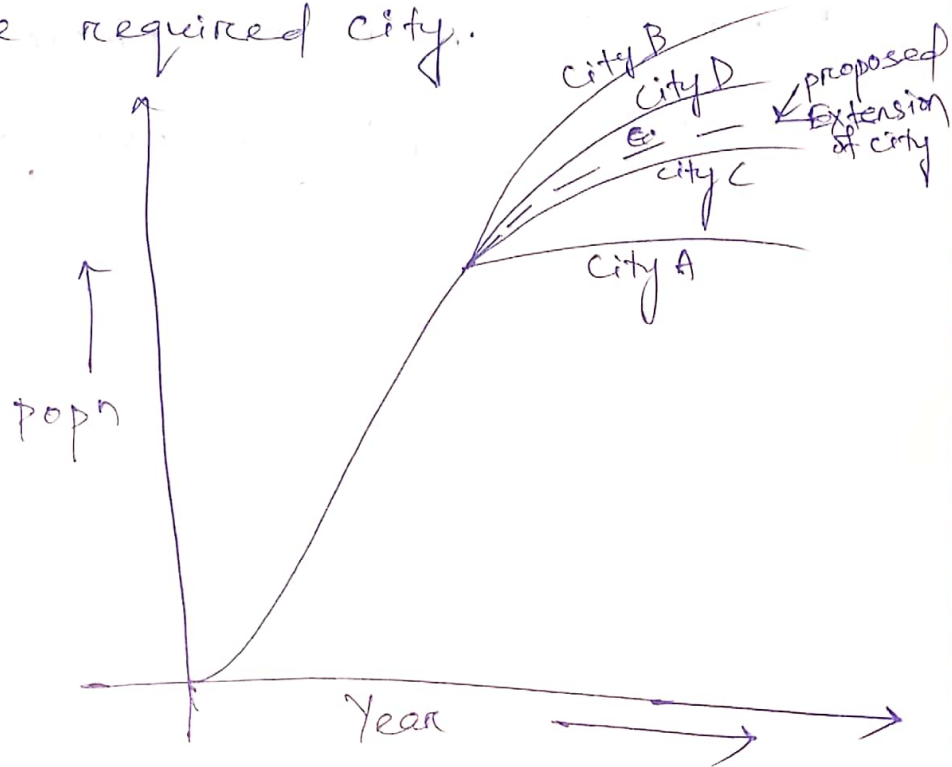 e required city..
City B
City D
proposed
Extension
of city
City C
City A
popn
Year